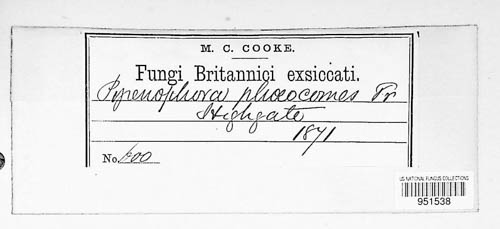 M. C. COOKE.
Fungi Britannici exsiccati.
Pyrenophora phæocomes Fr
Highgate
1871
No. 600
US NATIONAL FUNGUS COLLECTIONS
951538